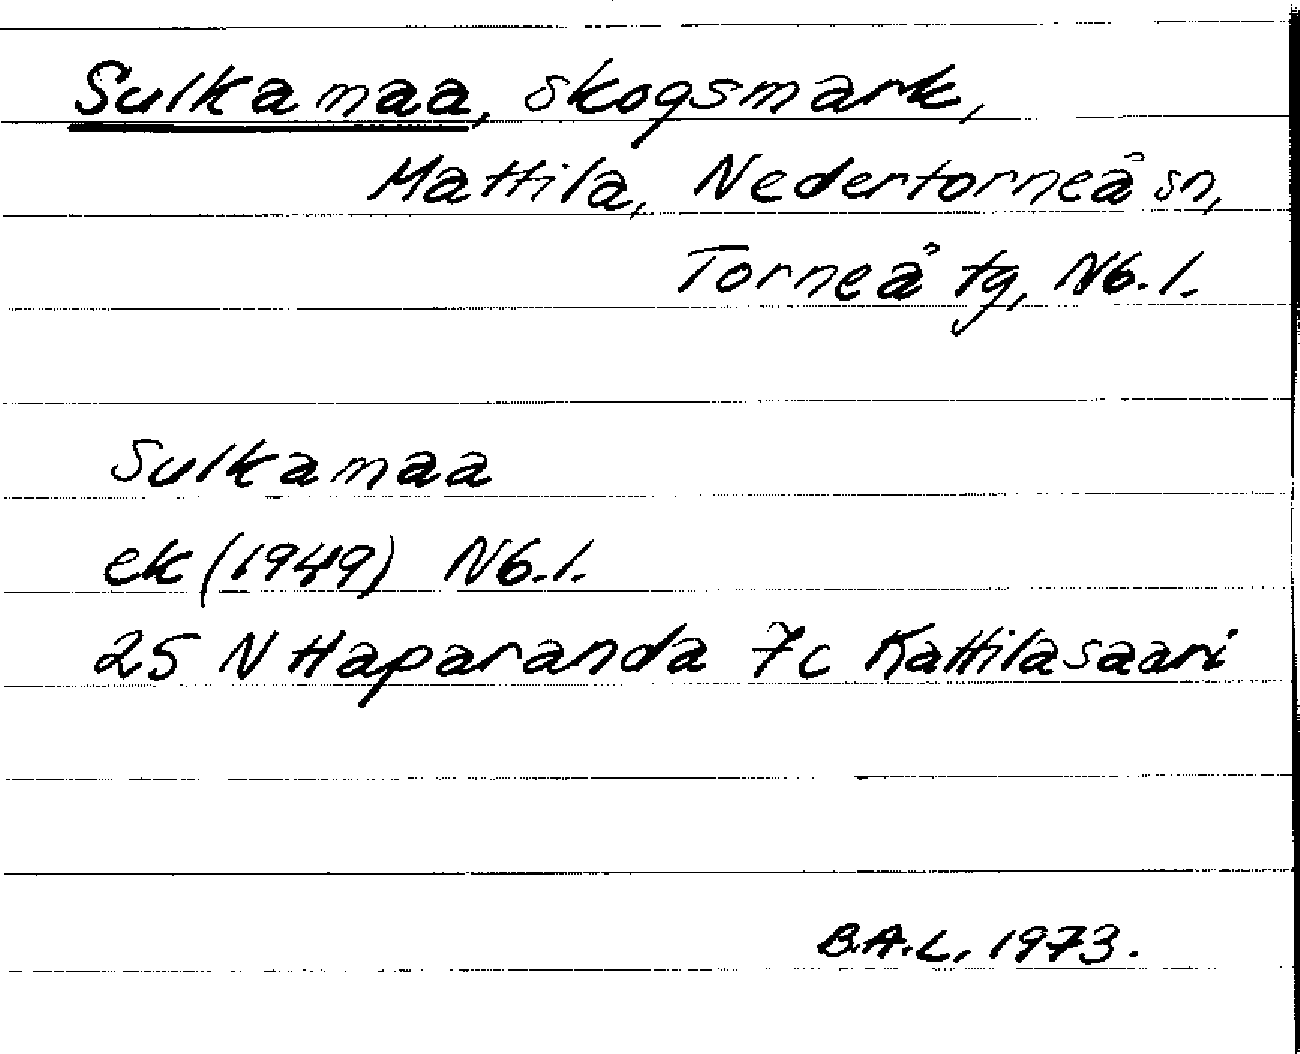 Sulkamaa, skogsmark,
Mattila, Nedertorneå sn,
Torneå tg, Nb.l.
Sulkamaa
ek (1949) Nb.l.
25 N Haparanda 7c Kattilasaari
B.A.L. 1973.